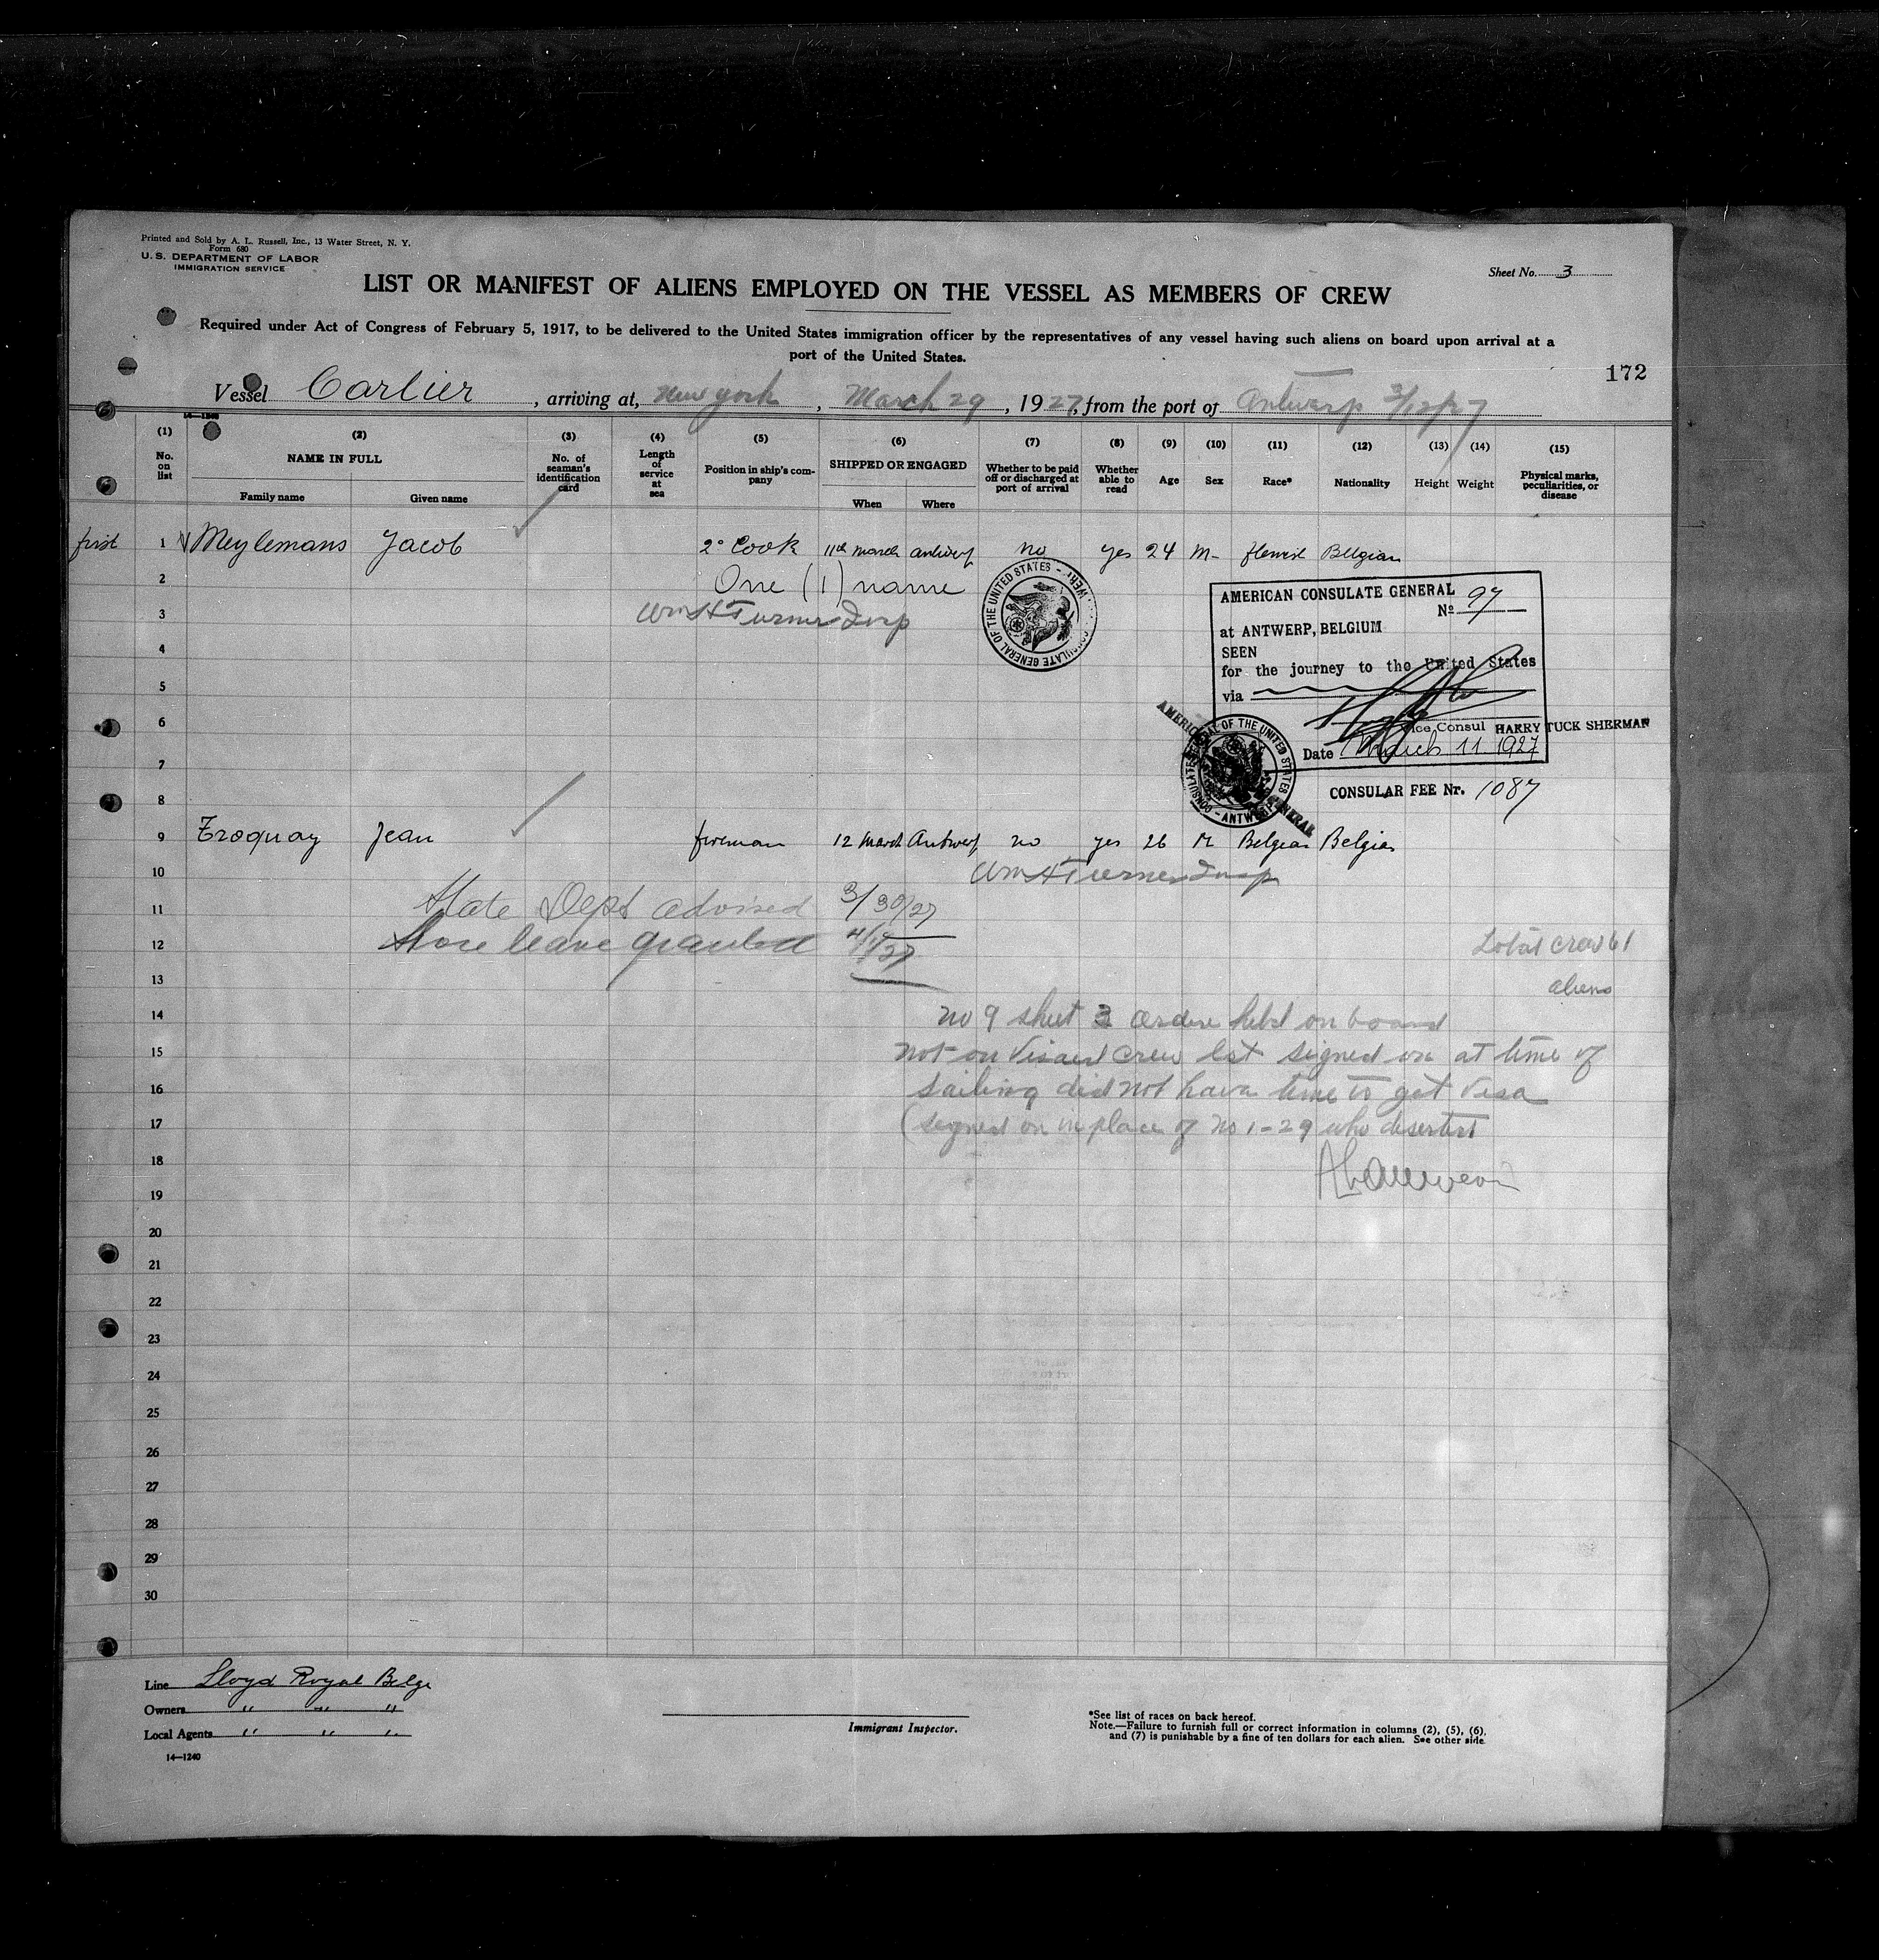 Printed and Sold by A. L. Russell, Inc., 13 Water Street, N. Y.
Form 680
U. S. DEPARTMENT OF LABOR
IMMIGRATION SERVICE
Sheet No. 3
LIST OR MANIFEST OF ALIENS EMPLOYED ON THE VESSEL AS MEMBERS OF CREW
Required under Act of Congress of February 5, 1917, to be delivered to the United States immigration officer by the representatives of any vessel having such aliens on board upon arrival at a
port of the United States.
172
Vessel Carlier, arriving at, New York, March 29, 1927, from the port of Antwerp 3/12/27
14-1240
(1) No. on list
(2) NAME IN FULL Family name Given name
(3) No. of seaman's identification card
(4) Length of service at sea
(5) Position in ship's company
(6) SHIPPED OR ENGAGED When Where
(7) Whether to be paid off or discharged at port of arrival
(8) Whether able to read
(9) Age
(10) Sex
(11) Race*
(12) Nationality
(13) Height
(14) Weight
(15) Physical marks, peculiarities, or disease
first 1 Meylemans Jacob 2° Cook 11th March Antwerp no yes 24 M- flemish Belgian
2 One (1) name
3 Wm H Turner Insp
CONSULATE GENERAL OF THE UNITED STATES
AMERICAN CONSULATE GENERAL
No 97
at ANTWERP, BELGIUM
SEEN
for the journey to the United States
via
Vice Consul HARRY TUCK SHERMAN
Date March 11 1927
CONSULATE GENERAL OF THE UNITED STATES - ANTWERP
CONSULAR FEE Nr. 1087
4
5
6
7
8
9 Troquay Jean fireman 12 March Antwerp no yes 26 M Belgian Belgian
10 Wm H Turner Insp
11 State Dept advised 3/30/27
12 Shore leave granted 4/1/27
Total crew 61
aliens
13
14 no 9 sheet 3 order held on board
15 not on Visaed crew list signed on at time of
16 sailing did not have time to get Visa
17 (signed on in place of No 1-29 who deserted
18
19
20
21
22
23
24
25
26
27
28
29
30
Line Lloyd Royal Belge
Owners " " "
Local Agents " " "
14—1240
Immigrant Inspector.
*See list of races on back hereof.
Note.—Failure to furnish full or correct information in columns (2), (5), (6),
and (7) is punishable by a fine of ten dollars for each alien. See other side.